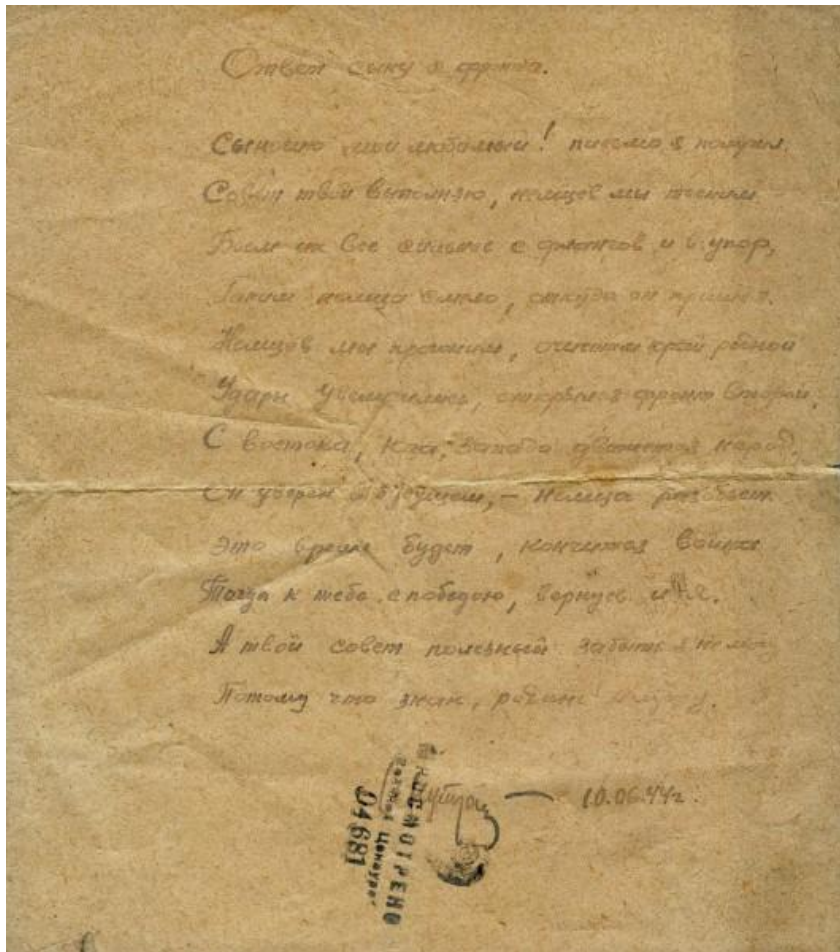 Ответ сыну с фронта.
Сыночно мой любимый! письмо я получил,
Совет твой выполняю, немцев мы тесним
Бьем их все сильнее с флангов и в упор,
Гоним немца смело, откуда он пришел.
Немцев мы прогоним, очистим край родной
Удары увеличились, открылся фронт второй.
С востока, юга, запада движется народ,
Он уверен в будущем, – немца разобьет.
Это время будет, кончится война
Тогда к тебе с победою, вернусь и я.
А твой совет полезный забыть я не могу
Потому что знаю,
10.06.44г.
ПРОСМОТРЕНО
Военной Цензурой
04681